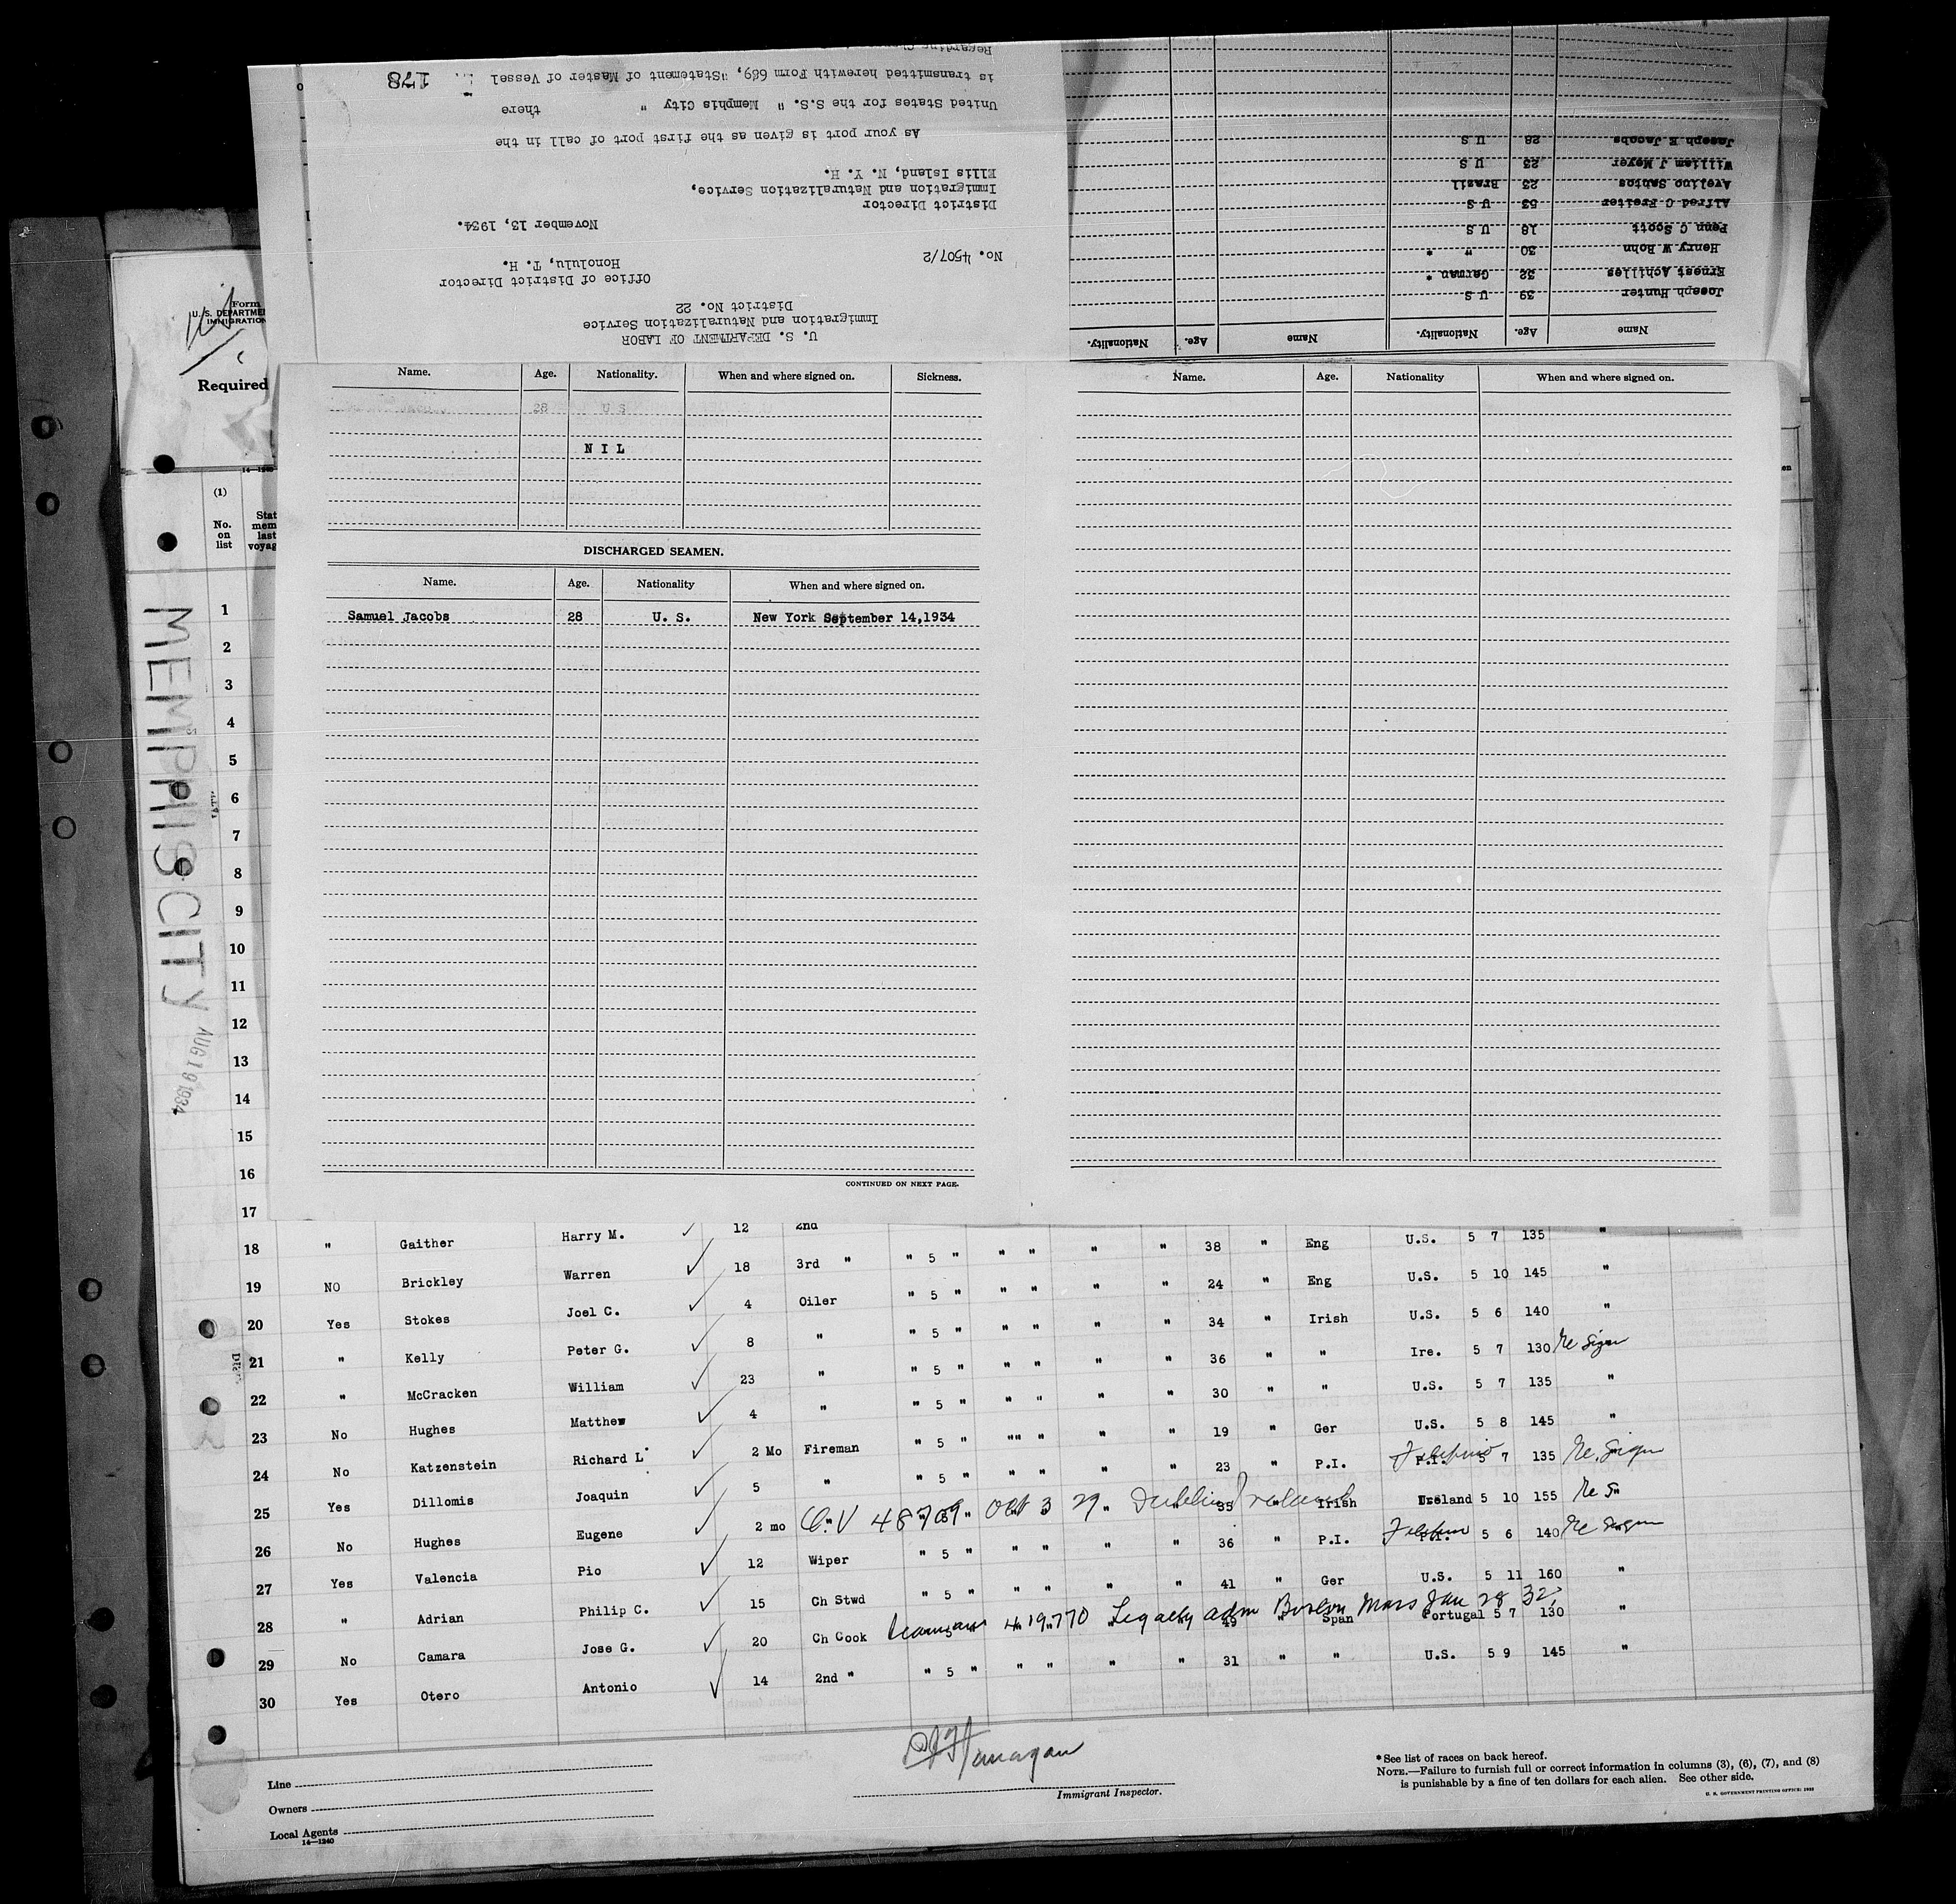 Regarding
is transmitted herewith Form 689, "Statement of Master of Vessel
178
United States for the S.S. " Memphis City " there
As your port is given as the first port of call in the
Ellis Island, N. Y. H.
Immigration and Naturalization Service,
District Director
November 13, 1934.
No. 4507/2
Honolulu, T. H.
Office of District Director
District No. 22
Immigration and Naturalization Service
U. S. DEPARTMENT OF LABOR
Joseph E Jacobs 28 U S
William J Meyer 23 U S
Avelino Santos 23 Brazil
Alfred C Freiter 53 U S
Penn C Scott 18 U S
Henry W Bohn 30 " *
Ernest Achilles 32 German *
Joseph Hunter 39 U S
Name Age. Nationality. Name Age. Nationality.
Form
U. S. DEPARTME
IMMIGRATION
Required
14—1240
(1)
No. on list
Stat mem last voyag
MEMPHIS CITY
AUG 19 1934
Name. Age. Nationality. When and where signed on. Sickness.
28 U S
NIL
DISCHARGED SEAMEN.
Name. Age. Nationality When and where signed on.
Samuel Jacobs 28 U. S. New York September 14,1934
CONTINUED ON NEXT PAGE.
Name. Age. Nationality When and where signed on.
1
2
3
4
5
6
7
8
9
10
11
12
13
14
15
16
17
18 " Gaither Harry M. 12 2nd
19 NO Brickley Warren 18 3rd " " 5 " " " " " 38 " Eng U.S. 5 7 135 "
20 Yes Stokes Joel C. 4 Oiler " 5 " " " " " 24 " Eng U.S. 5 10 145 "
21 " Kelly Peter G. 8 " " 5 " " " " " 34 " Irish U.S. 5 6 140 "
22 " McCracken William 23 " " 5 " " " " " 36 " " Ire. 5 7 130 Re Sign
23 No Hughes Matthew 4 " " 5 " " " " " 30 " " U.S. 5 7 135 "
24 No Katzenstein Richard L 2 Mo Fireman " 5 " "" " " " 19 " Ger U.S. 5 8 145 "
25 Yes Dillomis Joaquin 5 " " 5 " " " " " 23 " P.I. P.I. 5 7 135 Re Sign
26 No Hughes Eugene 2 mo C.V 48709 Oct 3 29 Dublin Ireland 35 Irish Ireland 5 10 155 Re S
27 Yes Valencia Pio 12 Wiper " 5 " " " " " 36 " P.I. P.I. 5 6 140 Re Sign
28 " Adrian Philip C. 15 Ch Stwd " 5 " " " " " 41 " Ger U.S. 5 11 160 "
29 No Camara Jose G. 20 Ch Cook 419770 Legally adm Boston Mass Jan 28 32 49 " Span Portugal 5 7 130 "
30 Yes Otero Antonio 14 2nd " " 5 " " " " " 31 " " U.S. 5 9 145 "
Line
Owners
Local Agents
14—1240
Immigrant Inspector.
* See list of races on back hereof.
NOTE.—Failure to furnish full or correct information in columns (3), (6), (7), and (8)
is punishable by a fine of ten dollars for each alien. See other side.
U. S. GOVERNMENT PRINTING OFFICE: 1932